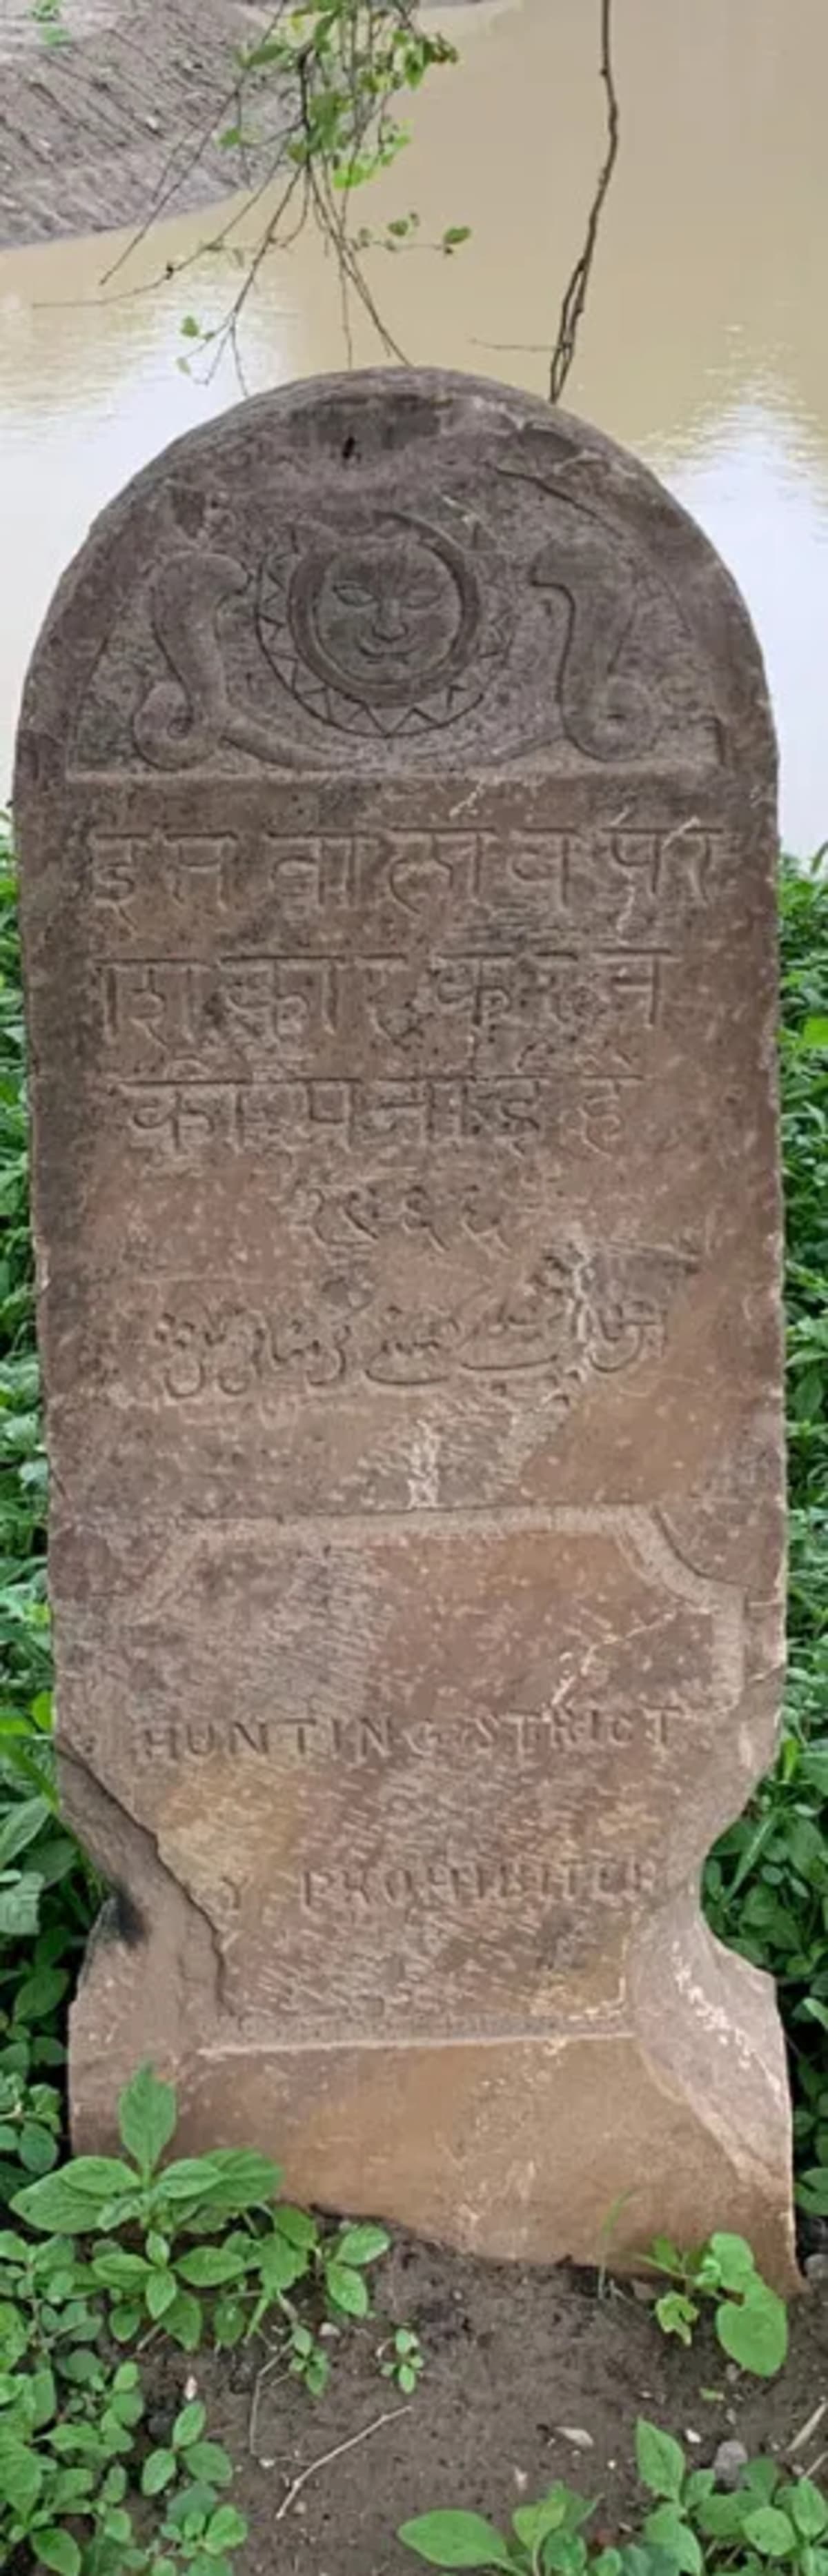 इस तालाब पर
शिकार करने
की मनाई है
१९६६
HUNTING STRICT
Y PROHIBITED